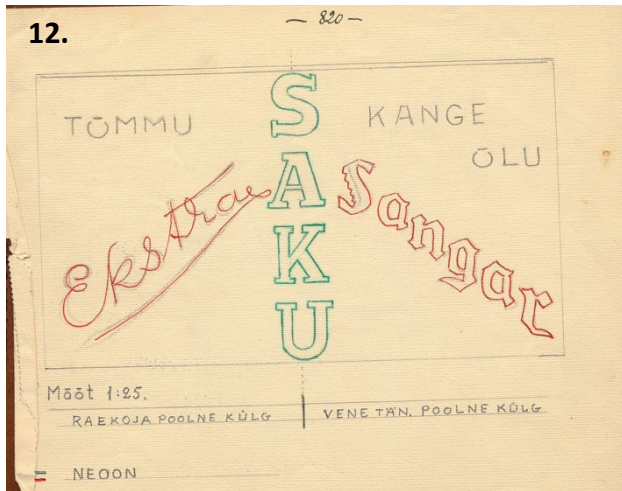 12.
— 820 —
TÕMMU
KANGE
ÕLU
SAKU
Ekstra
Sangar
Mõõt 1:25.
RAEKOJA POOLNE KÜLG
VENE TÄN. POOLNE KÜLG
NEOON